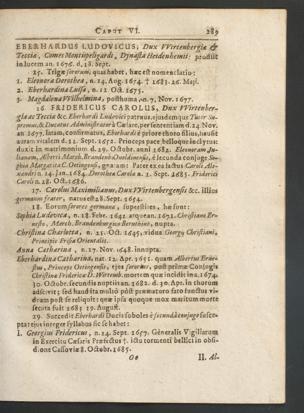 CAPUT VI. 289
EBERHARDUS LUDOVICUS, Dux VVirtembergiæ &
Tecciæ, Comes Montispeligardi, Dynasta Heidenhemii: prodiit
in lucem an. 1676. d. 18. Sept.
25. Trigæ sororum, quas habet, hæc est nomenclatio:
1. Eleonora Dorothea, n. 14. Aug. 1674 † 1683. 26. Maji.
2. Eberhardina Luisa, n. 12 Oct. 1675.
3. Magdalena VVilhelmina, posthuma, n. 7. Nov. 1677.
16. FRIDERICUS CAROLUS, Dux VVirtember-
giæ ac Tecciæ &c. Eberhardi Ludovici patruus, ejusdemque Tutor Su-
premus, & Ducatus Administrator à Cæsare, per sententiam d. 24. Nov.
an 1677. latam, confirmatus, Eberhardi è priore choro filius, hausit
auram vitalem d. 12. Sept. 1652. Princeps pace bellóque inclytus:
duxit in matrimonium d. 29. Octobr. anni 1682. Eleonoram Ju-
lianam, Alberti March. Brandenb Onoldinensis, è secunda conjuge So-
phia Margareta C. Oetingensi, gnatam: Pater ex ea factus Caroli Ale-
xandri n. 14. Jan. 1684. Dorotheæ Carolæ n. 1. Sept. 1685. Friderici
Caroli n. 28. Oct. 1686.
17. Carolus Maximilianus, Dux VVirtembergensis &c. illius
germanus frater, natus est 28. Sept. 1654.
18. Eorum sorores germanæ, superstites, hæ sunt:
Sophia Ludovica, n. 18. Febr. 1642. atque an. 1671. Christiano Er-
nesto, March. Brandenburgico Beruthino, nupta.
Christina Charlotta, n. 21. Oct. 1645. vidua Georgii Christiani,
Principis Frisiæ Orientalis.
Anna Catharina, n. 27. Nov. 1648. innupta.
Eberhardina Catharina, nat. 12. Apr. 1651. quam Albertus Erne-
stus, Princeps Oetingensis, viva sororis, post primæ Conjugis
Christinæ Fridericæ D. Wirtemb. mortem quæ incidit in a. 1674.
30. Octobr. secundis nuptiis an. 1682. d. 30. Apr. in thorum
adscivit; sed haud ita multò post præmaturo fato functus vi-
duam post se reliquit: quæ ipsa quoque mox maritum morte
secuta fuit 1683 19. August.
29. Succedit Eberhardi Ducis soboles è secunda conjuge suscep-
pta: cujus integer syllabus sic se habet:
I. Georgius Fridericus, n. 24. Sept. 1657. Generalis Vigiliarum
in Exercitu Cæsaris Præfectus †. ictu tormenti bellici in obsi-
dione Cassoviæ 8. Octobr. 1685.
Oo II. Al-